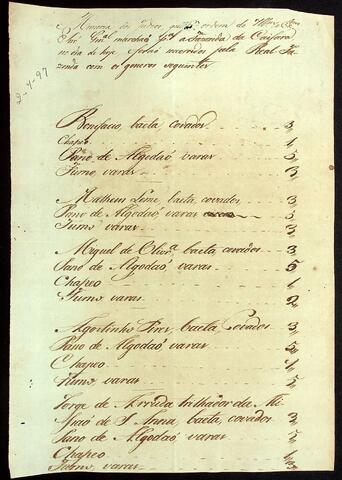 dos Indios que p.r ordem do Ill.mo e Ex.mo
Snr. Gen.al marcharaõ p.a a Fazenda de Caisara
no dia de hoje, e foraõ socorridos pela Real Fa-
zenda com os generos seguintes
2-4-97
Bonifacio, baeta, covados 3
Chapeo 1
Pano de Algodaõ, varas 5
Fumo, varas 3
Matheus Leme, baeta, covados 3
Pano de Algodaõ, varas 5
Fumo varas 3
Miguel de Olivr.a, baeta, covados 3
Pano de Algodaõ, varas 5
Chapeo 1
Fumo varas 2
Agostinho Pires, baeta, Covados 3
Pano de Algodaõ, varas 5
Chapeo 1
Fumo, varas 5
Jorge de Arruda da Mi-
ssaõ de S. Anna, baeta, covados 3
Pano de Algodaõ, varas 5
Chapeo 1
Fumo, varas